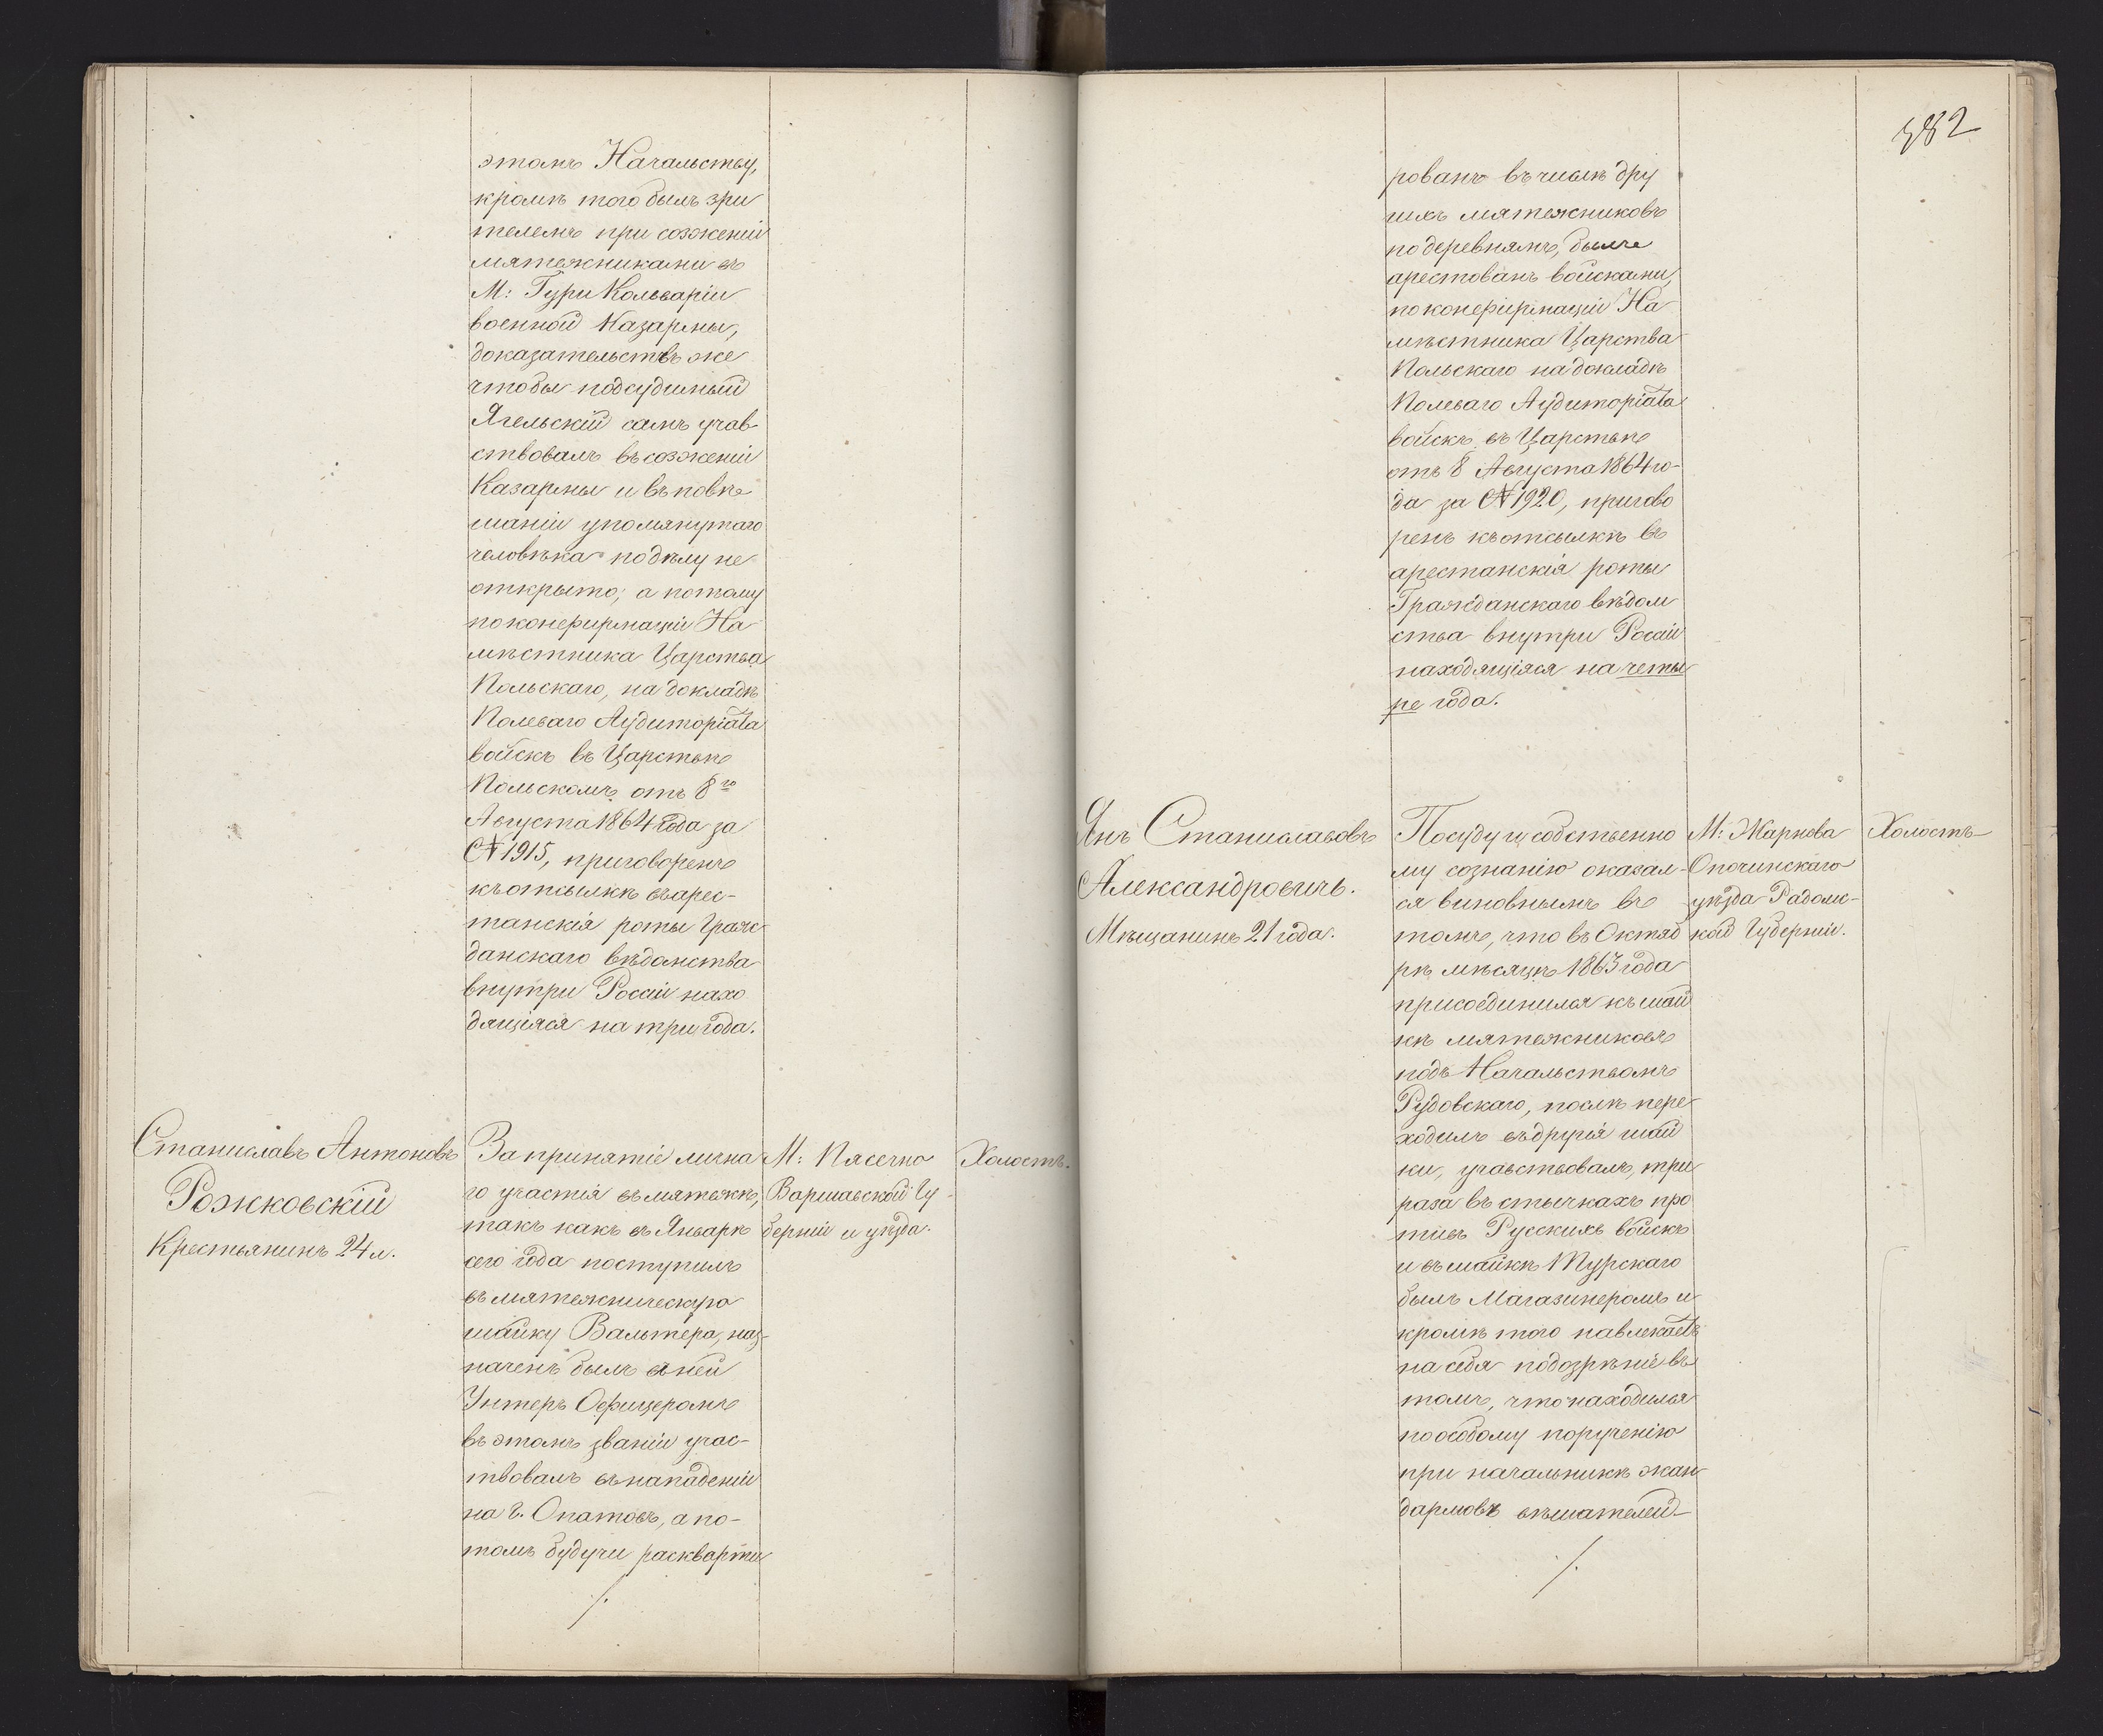 этомъ Начальству,
кромѣ того былъ зри
телемъ при созженіи
мятежниками въ
М: Гури Кольваріи
военной Казармы,
доказательствъ же
чтобы подсудимый
Ягельскій самъ учав-
ствовалъ въ созженіи
Казармы и въ повѣ
шаніи упомянутаго
человѣка по дѣлу не
открыто; а потому
по конфирмаціи На
мѣстника Царства
Польскаго, на докладѣ
Полеваго Аудиторіата
войскъ въ Царствѣ
Польскомъ отъ 8го
Августа 1864 года за
№ 1915, приговоренъ
къ отсылкѣ въ арес-
танскія роты Граж
данскаго вѣдомства
внутри Россіи нахо
дящіяся на три года.
Станиславъ Антоновъ
Рожковскій
Крестьянинъ 24 л.
За принятіе лична
го участія въ мятежѣ,
такъ какъ въ Январѣ
сего года поступилъ
въ мятежническую
шайку Вальтера, наз-
наченъ былъ въ ней
Унтеръ Офицеромъ
въ этомъ званіи учас-
твовалъ въ нападеніи
на г. Опатовъ, а по-
томъ будучи раскварти
/.
М: Пясечно
Варшавской Гу-
берніи и уѣзда.
Холостъ.
382
рованъ въ числѣ дру
гихъ мятежниковъ
по деревнямъ, былъ
арестованъ войсками,
по конфирмаціи На
мѣстника Царства
Польскаго на докладѣ
Полеваго Аудиторіата
войскъ въ Царствѣ
отъ 8 Августа 1864 го-
да за № 1920, пригово
ренъ къ отсылкѣ въ
арестанскія роты
Гражданскаго вѣдом
ства внутри Россіи
находящіяся на четы
ре года.
Янъ Станиславовъ
Александровичъ.
Мѣщанинъ 21 года.
По суду и собственно
му сознанію оказал-
ся виновнымъ въ
томъ, что въ Октяб
рѣ мѣсяцѣ 1863 года
присоединился къ шай
кѣ мятежниковъ
подъ Начальствомъ
Рудовскаго, послѣ пере
ходилъ въ другія шай
ки, учавствовалъ, три
раза въ стычкахъ про
тивъ Русскихъ войскъ
и въ шайкѣ Турскаго
былъ Магазинеромъ и
кромѣ того навлекаетъ
на себя подозрѣніе въ
томъ, что находился
по особому порученію
при начальникѣ жан
дармовъ вѣшателей
/.
М: Жарнова
Опочинскаго
уѣзда Радомс-
кой Губерніи.
Холостъ